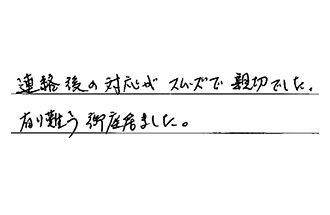 連絡後の対応が スムーズで 親切でした。
有り難う御座居ました。